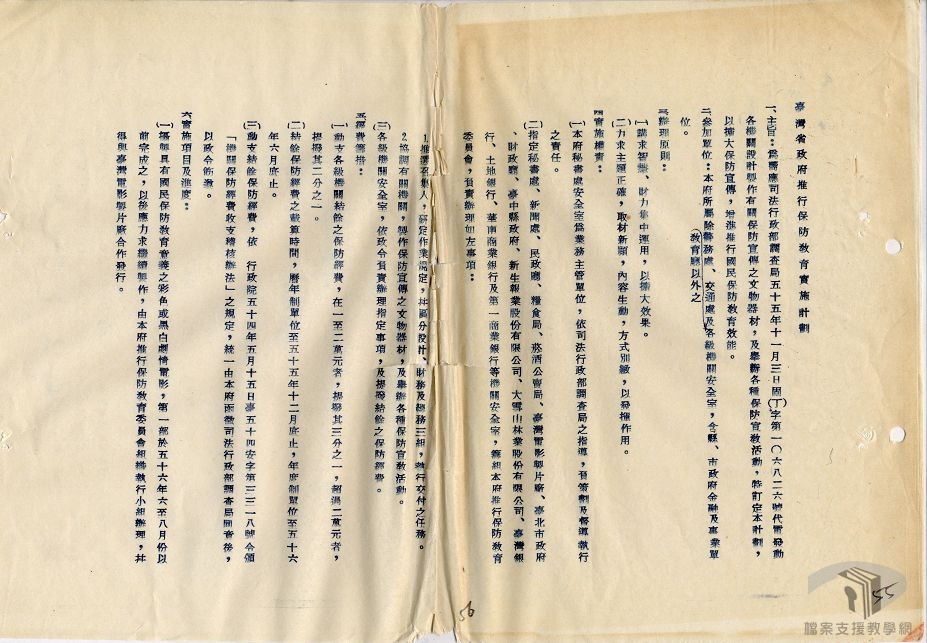 臺灣省政府推行保防教育實施計劃
一、主旨：為響應司法行政部調查局五十五年十一月三日固(丁)字第一〇六八二六號代電發動
各機關設計製作有關保防宣傳之文物器材，及舉辦各種保防宣教活動，特訂定本計劃，
以擴大保防宣傳，增進推行國民保防教育效能。
二、參加單位：本府所屬除警務處、交通處及各級機關安全室，含縣、市政府金融及事業單
教育廳以外之
位。
三、辦理原則：
(一)講求智慧、財力集中運用，以擴大效果。
(二)力求主題正確，取材新穎，內容生動，方式別緻，以發揮作用。
四、實施權責：
(一)本府秘書處安全室為業務主管單位，依司法行政部調查局之指導，負策劃及督導執行
之責任。
(二)指定秘書處、新聞處、民政廳、糧食局、菸酒公賣局、臺灣電影製片廠、臺北市政府
、財政廳、臺中縣政府、新生報業股份有限公司、大雪山林業股份有限公司、臺灣銀
行、土地銀行、華南商業銀行及第一商業銀行等機關安全室，籌組本府推行保防教育
委員會，負責辦理如左事項：
1.推選召集人，釐定作業規定，并區分設計、財務及總務三組，執行交付之任務。
2.協調有關機關，製作保防宣傳之文物器材，及舉辦各種保防宣教活動。
(三)各級機關安全室，依政令負責辦理指定事項，及提撥結餘之保防經費。
五、經費籌措：
(一)動支各級機關結餘之保防經費，在一至二萬元者，提撥其三分之一，超過二萬元者，
提撥其二分之一。
(二)結餘保防經費之截算時間，曆年制單位至五十五年十二月底止，年度制單位至五十六
年六月底止。
(三)動支結餘保防經費，依　行政院五十四年五月十五日臺五十四安字第三三一八號令頒
「機關保防經費收支稽核辦法」之規定，統一由本府函徵司法行政部調查局同意後，
以政令飭遵。
六、實施項目及進度：
(一)攝製具有國民保防教育意義之彩色或黑白劇情電影，第一部於五十六年六至八月份以
前完成之，以後應力求繼續製作，由本府推行保防教育委員會組織執行小組辦理，并
得與臺灣電影製片廠合作發行。
56
55
檔案支援教學網